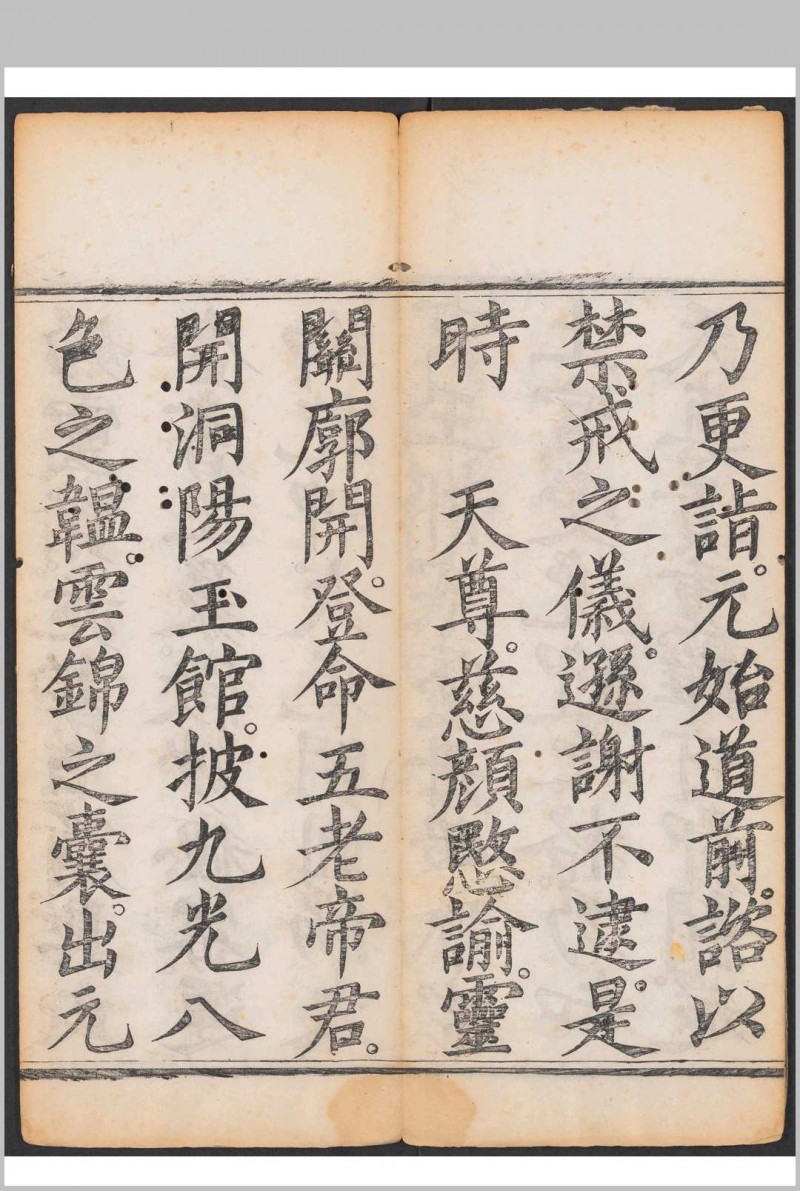 乃更詣。元始道前。諮以
禁戒之儀。遜謝不逮。是
時　　天尊。慈顏愍諭。靈
關廓開。登命五老帝君。
開洞陽玉館。披九光八
色之韞。雲錦之囊。出元